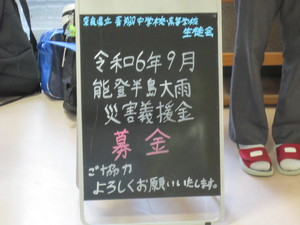 奈良県立青翔中学校・高等学校
生徒会
令和6年9月
能登半島大雨
災害義援金
募金
ご協力
よろしくお願いいたします。